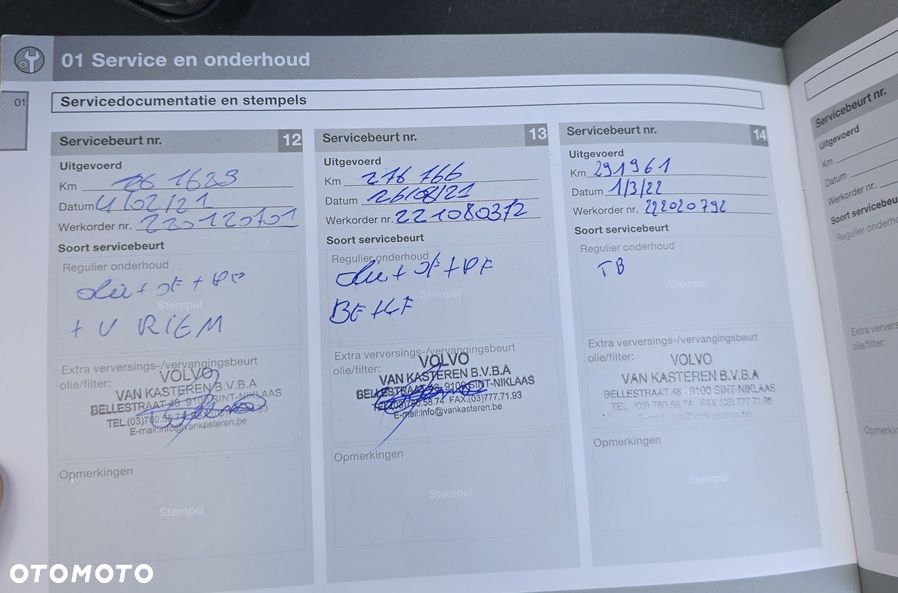 01 Service en onderhoud
01
Servicedocumentatie en stempels
Servicebeurt nr. 12
Uitgevoerd
Km
Datum 4/02/21
Werkorder nr.
Soort servicebeurt
Regulier onderhoud
Stempel
+ V RIEM
Extra verversings-/vervangingsbeurt
olie/filter:
VOLVO
VAN KASTEREN B.V.B.A
BELLESTRAAT 48- 9100 SINT-NIKLAAS
TEL.(03)780.58.74
E-mail:info@vankasteren.be
Opmerkingen
Stempel
Servicebeurt nr. 13
Uitgevoerd
Km 276 766
Datum 26/08/21
Werkorder nr. 221080372
Soort servicebeurt
Regulier onderhoud
Stempel
Extra verversings-/vervangingsbeurt
olie/filter:
VOLVO
VAN KASTEREN B.V.B.A
BELLESTRAAT 48- 9100 SINT-NIKLAAS
TEL.(03)780.58.74 FAX.(03)777.71.93
E-mail:info@vankasteren.be
Opmerkingen
Stempel
Servicebeurt nr. 14
Uitgevoerd
Km 291961
Datum 1/3/22
Werkorder nr. 222020792
Soort servicebeurt
Regulier onderhoud
TB
Stempel
Extra verversings-/vervangingsbeurt
olie/filter:
VOLVO
VAN KASTEREN B.V.B.A
BELLESTRAAT 48 - 9100 SINT-NIKLAAS
TEL. (03) 780.58.74 FAX (03) 777.71.93
Opmerkingen
Stempel
Servicebeurt nr.
Uitgevoerd
Km
Datum
Werkorder nr.
Soort
Regulier
Extra
olie/filter:
OTOMOTO